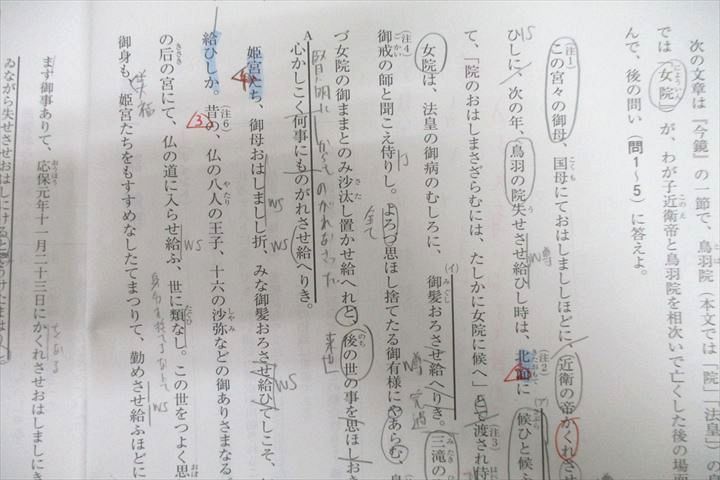 次の文章は『今鏡』の一節で、鳥羽院(本文では「院」「法皇」)の
では「女院」が、わが子近衛帝と鳥羽院を相次いで亡くした後の場面
んで、後の問い(問1～5)に答えよ。
(注1)この宮々の御母、国母にておはしまししほどに、近衛の帝かくれさせ
ひしに、次の年、鳥羽の院失せさせ給ひし時は、(注2)北面に(ア)候ひと候ふ
て、「院のおはしまさざらむには、たしかに女院に候へ」とて(注3)渡され侍
(注4)女院は、法皇の御病のむしろに、(イ)御髪おろさせ給へりき。三滝の
御戒の師と聞こえ侍りし。よろづ思ほし捨てたる御有様にやあらむ、
づ女院の御ままとのみ沙汰し置かせ給へれど、後の世の事を思ほしおき
A心かしこく何事にものがれさせ給へりき。
姫宮たち、御母おはしましし折、みな御髪おろさせ給ひてしこそ、
給ひしか。(注6)昔の、仏の八人の王子、十六の沙弥などの御ありさまなる
の后の宮にて、仏の道に入らせ給ふ、世に類なし。この世をつよく思
御身も、姫宮たちをもすすめなしたてまつりて、勤めさせ給ふほどに
まず御事ありて、応保元年十一月二十三日にかくれさせおはしましにき
ゐながら失せさせおはしにけるとぞうけたまはりし。